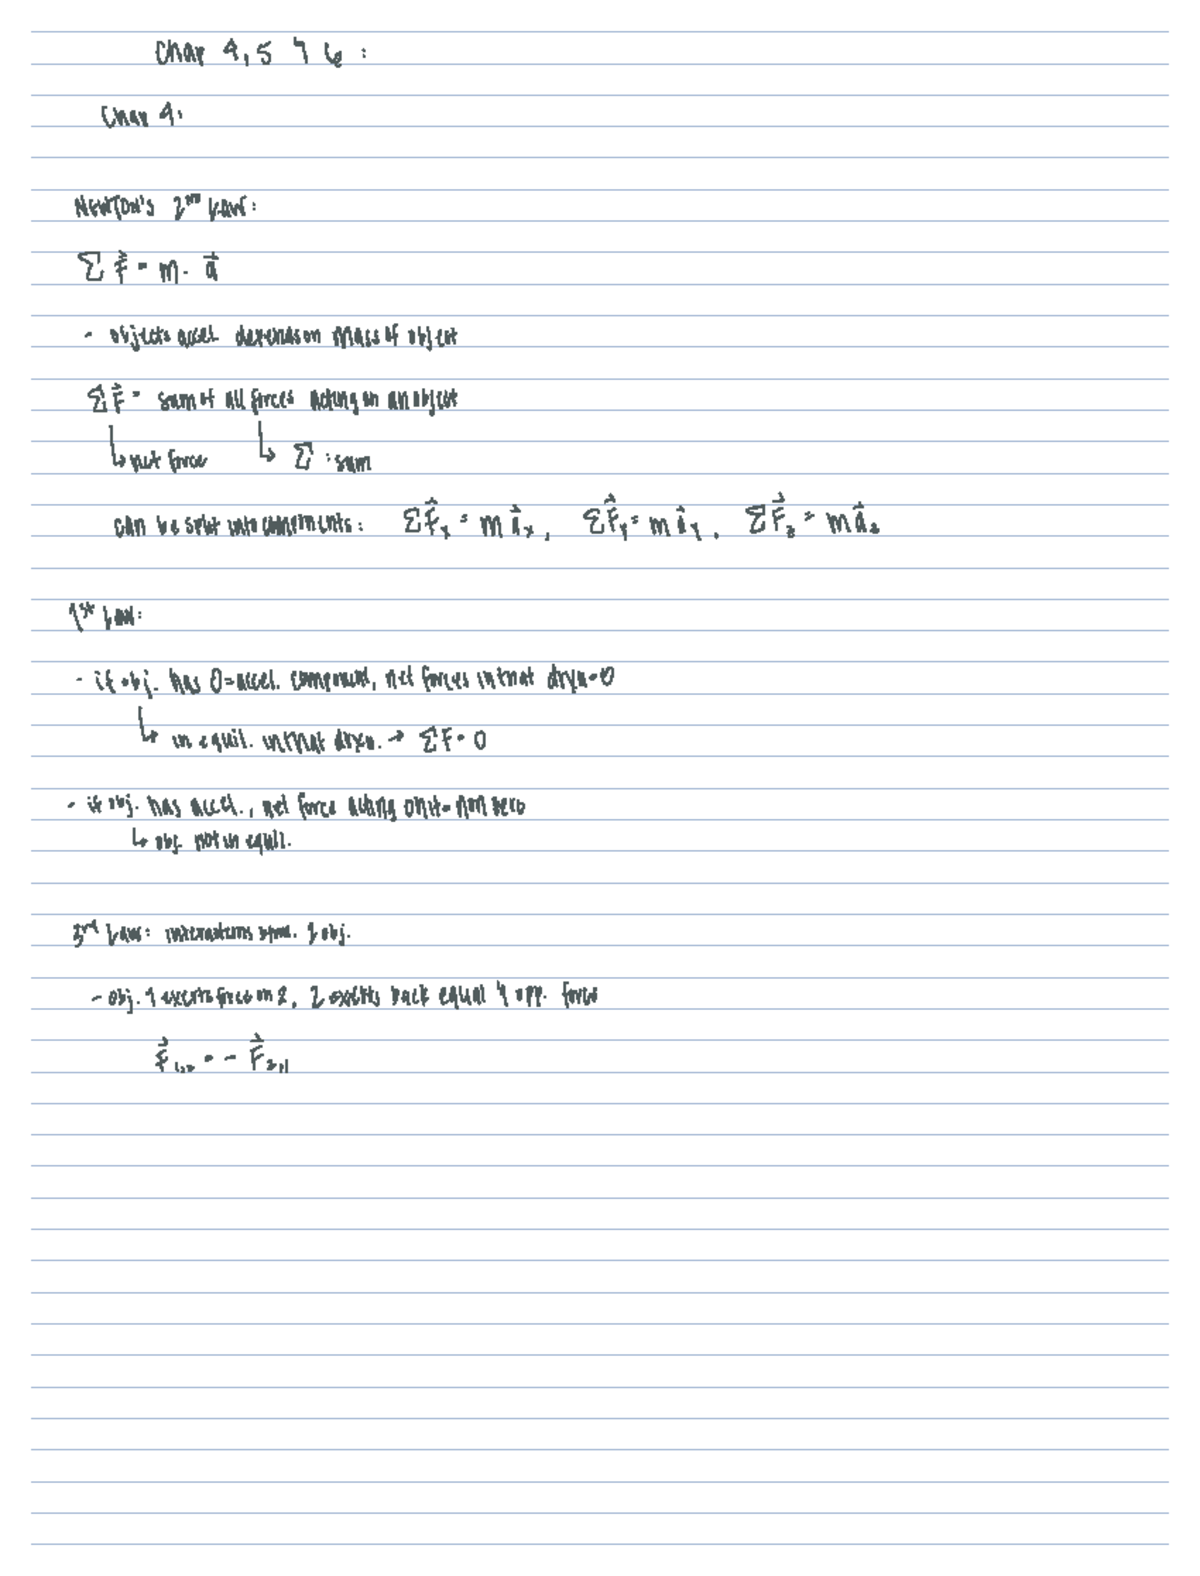 Chap 4, 5 & 6 :
Chap 4:
NEWTON'S 2nd LAW:
Σ F⃗ = m · a⃗
- objects accel. depends on mass of object
Σ F⃗ = sum of all forces acting on an object
↳ net force ↳ Σ : sum
can be split into components: ΣF⃗x = m a⃗x, ΣF⃗y = m a⃗y, ΣF⃗z = m a⃗z
1st Law:
- if obj. has 0 = accel. component, net forces in that drxn = 0
↳ in equil. in that drxn. → ΣF = 0
- if obj. has accel., net force acting on it = non zero
↳ obj. not in equil.
3rd Law: interactions btwn. 2 obj.
- obj. 1 exerts force on 2, 2 exerts back equal & opp. force
F⃗1,2 = - F⃗2,1